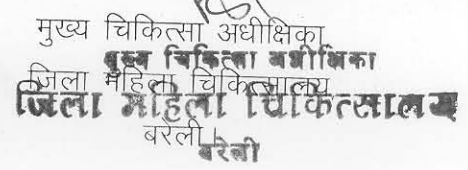 मुख्य चिकित्सा अधीक्षिका
मुख्य चिकित्सा अधीक्षिका
जिला महिला चिकित्सालय
जिला महिला चिकित्सालय
बरेली।
बरेली